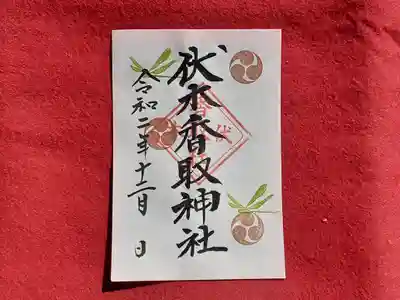 伏木香取神社
令和二年十二月 日